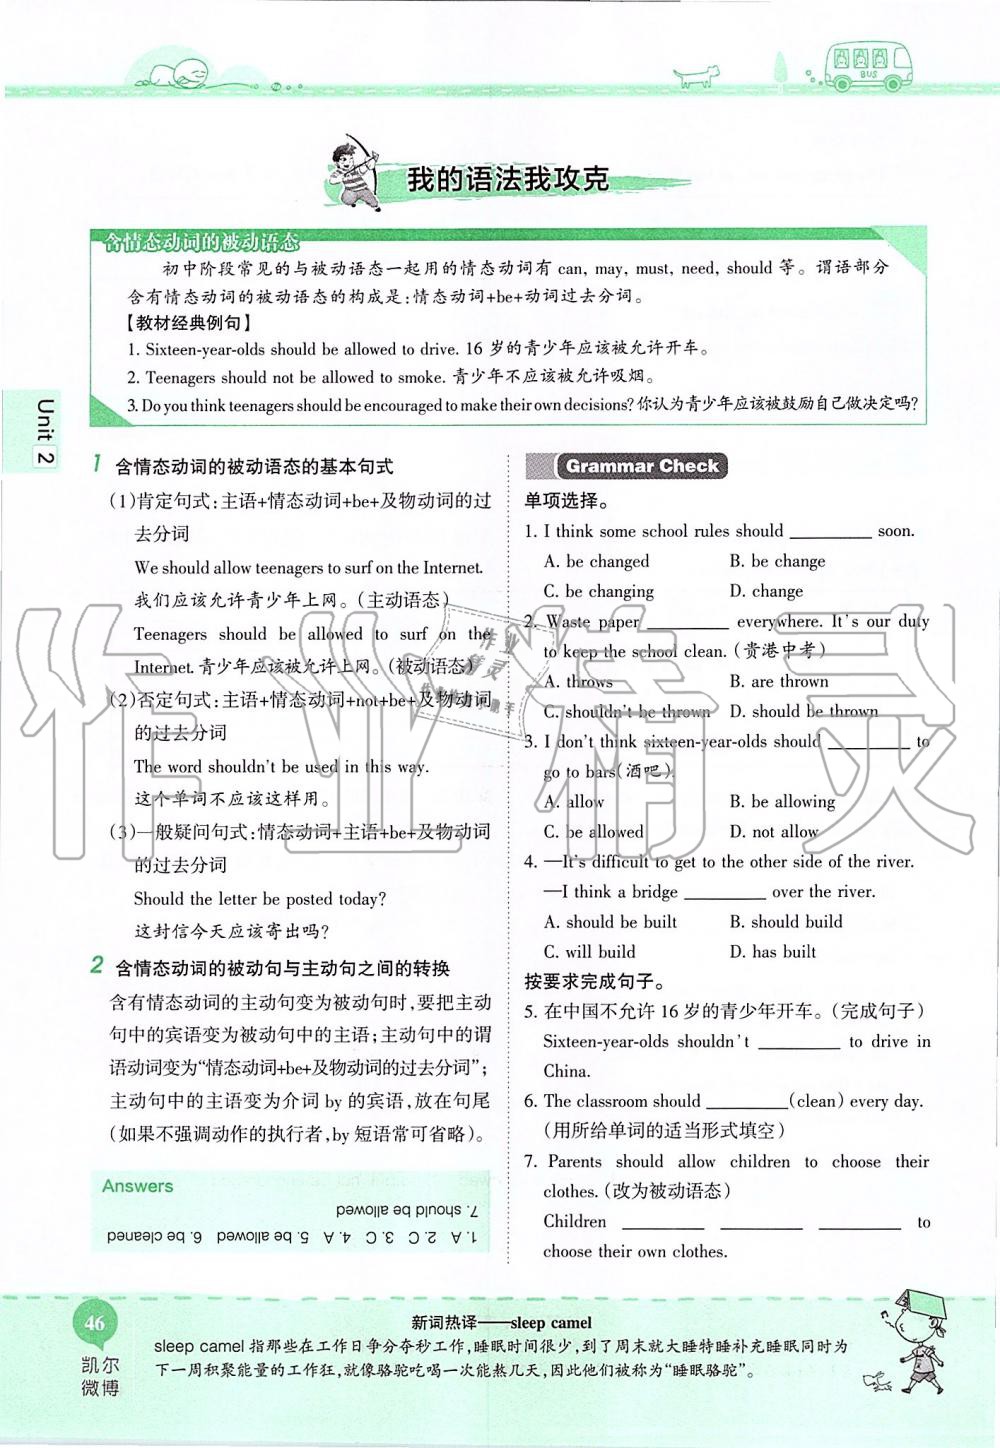 BUS
我的语法我攻克
含情态动词的被动语态
初中阶段常见的与被动语态一起用的情态动词有 can, may, must, need, should 等。谓语部分
含有情态动词的被动语态的构成是:情态动词+be+动词过去分词。
【教材经典例句】
1. Sixteen-year-olds should be allowed to drive. 16 岁的青少年应该被允许开车。
2. Teenagers should not be allowed to smoke. 青少年不应该被允许吸烟。
3. Do you think teenagers should be encouraged to make their own decisions? 你认为青少年应该被鼓励自己做决定吗?
Unit 2
1 含情态动词的被动语态的基本句式
(1)肯定句式:主语+情态动词+be+及物动词的过
去分词
We should allow teenagers to surf on the Internet.
我们应该允许青少年上网。(主动语态)
Teenagers should be allowed to surf on the
Internet. 青少年应该被允许上网。(被动语态)
(2)否定句式:主语+情态动词+not+be+及物动词
的过去分词
The word shouldn't be used in this way.
这个单词不应该这样用。
(3)一般疑问句式:情态动词+主语+be+及物动词
的过去分词
Should the letter be posted today?
这封信今天应该寄出吗?
2 含情态动词的被动句与主动句之间的转换
含有情态动词的主动句变为被动句时,要把主动
句中的宾语变为被动句中的主语;主动句中的谓
语动词变为“情态动词+be+及物动词的过去分词”;
主动句中的主语变为介词 by 的宾语,放在句尾
(如果不强调动作的执行者,by 短语常可省略)。
Answers
1. A 2. C 3. C 4. A 5. be allowed 6. be cleaned
7. should be allowed
Grammar Check
单项选择。
1. I think some school rules should ________ soon.
A. be changed B. be change
C. be changing D. change
2. Waste paper ________ everywhere. It's our duty
to keep the school clean. (贵港中考)
A. throws B. are thrown
C. shouldn't be thrown D. should be thrown
3. I don't think sixteen-year-olds should ________ to
go to bars(酒吧).
A. allow B. be allowing
C. be allowed D. not allow
4. —It's difficult to get to the other side of the river.
—I think a bridge ________ over the river.
A. should be built B. should build
C. will build D. has built
按要求完成句子。
5. 在中国不允许 16 岁的青少年开车。(完成句子)
Sixteen-year-olds shouldn't ________ to drive in
China.
6. The classroom should ________(clean) every day.
(用所给单词的适当形式填空)
7. Parents should allow children to choose their
clothes. (改为被动语态)
Children ________ ________ ________ to
choose their own clothes.
46
凯尔
微博
新词热译——sleep camel
sleep camel 指那些在工作日争分夺秒工作,睡眠时间很少,到了周末就大睡特睡补充睡眠同时为
下一周积聚能量的工作狂,就像骆驼吃喝一次能熬几天,因此他们被称为“睡眠骆驼”。
作业精灵
作业
精灵